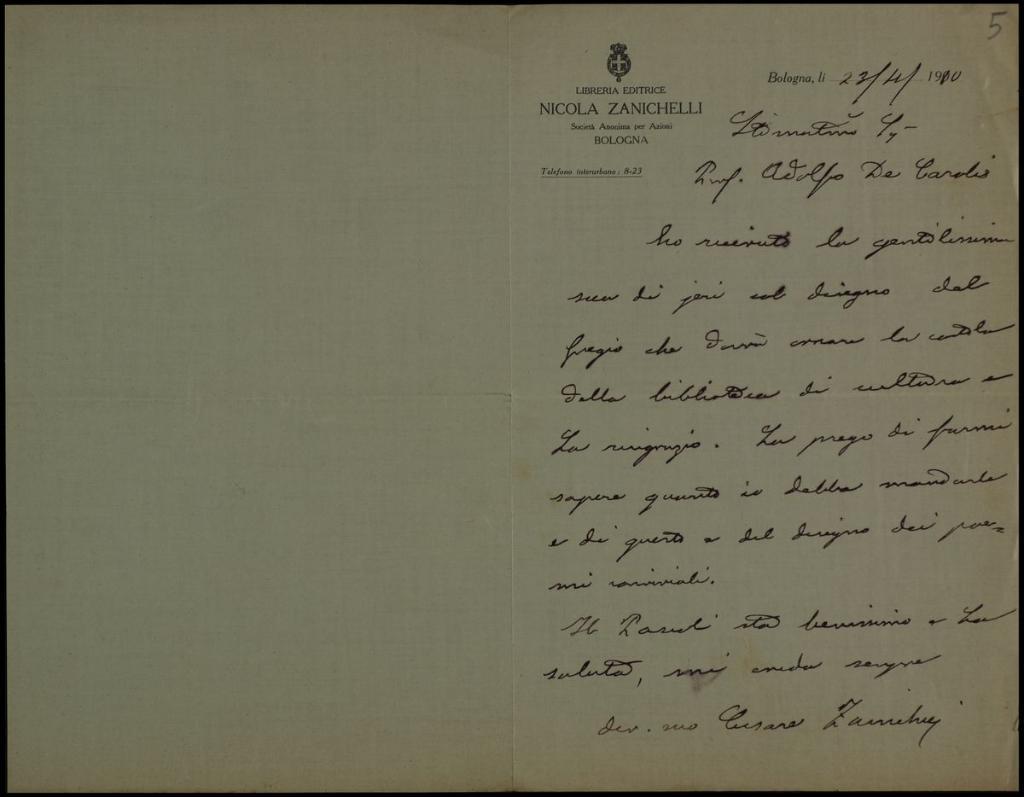 5
LIBRERIA EDITRICE
NICOLA ZANICHELLI
Società Anonima per Azioni
BOLOGNA
Telefono interurbano: 8-23
Bologna, li 23/4/ 1910
Stimatmo Sig
Prof. Adolfo De Carolis
ho ricevuto la gentilissima
sua di jeri col disegno del
fregio che dovrà ornare la
della biblioteca di cultura e
La ringrazio. La prego di farmi
sapere quanto io debba mandarle
e di questo e del disegno dei poe=
mi conviviali.
Il Pascoli sta benissimo e La
saluta, mi creda sempre
dev. suo Cesare Zanichelli